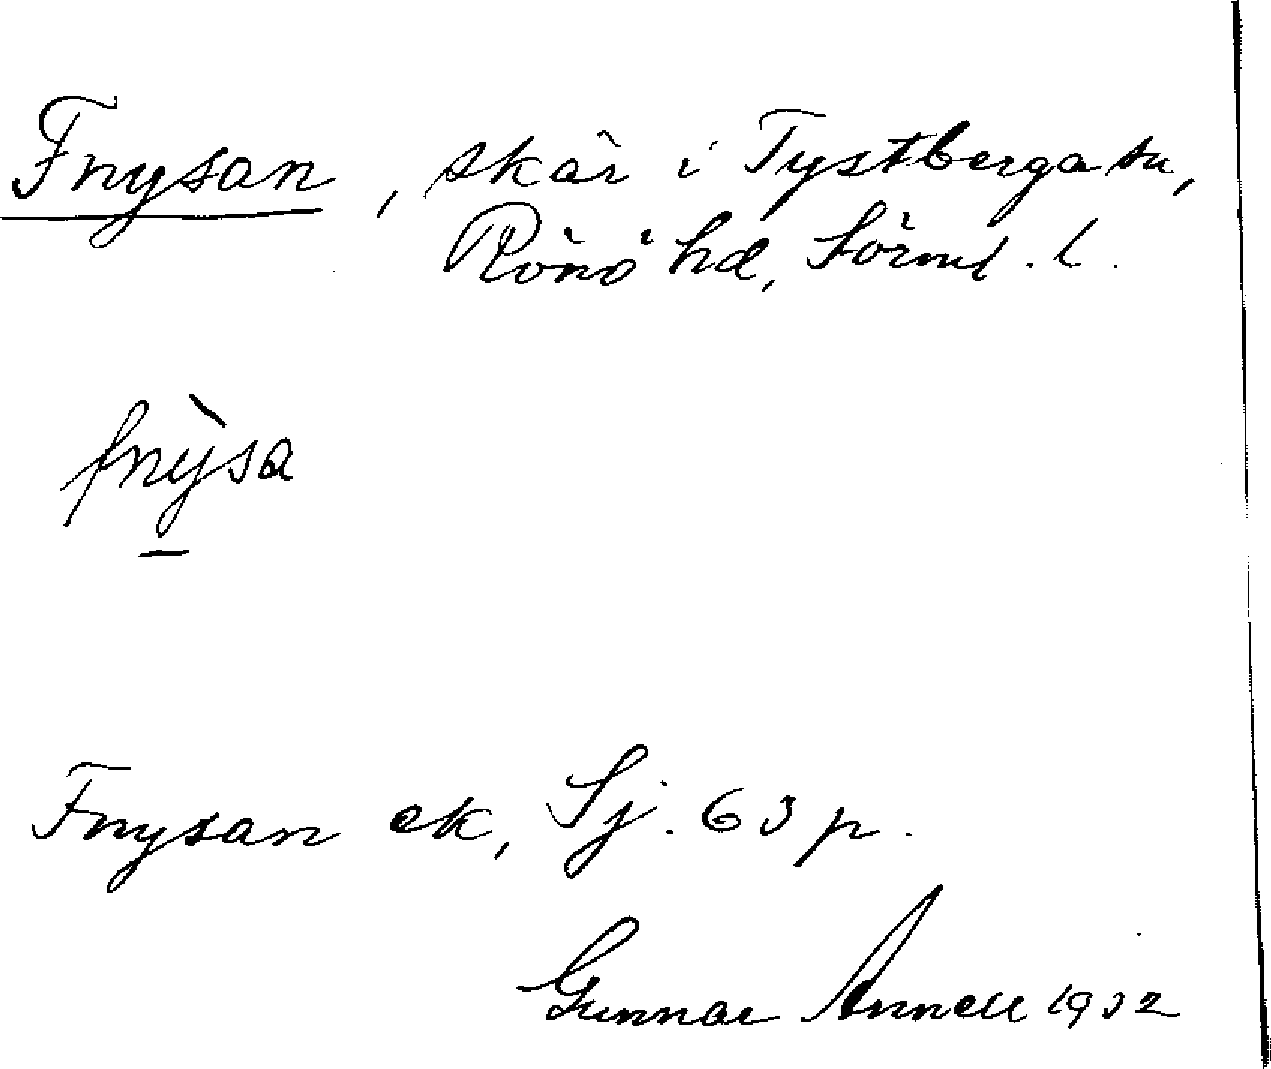 Fnysan, skär i Tystberga sn,
Rönö hd, Sörml. l.
fnỳsa
Fnysan ek, Sj. 63 p.
Gunnar Annell 1932